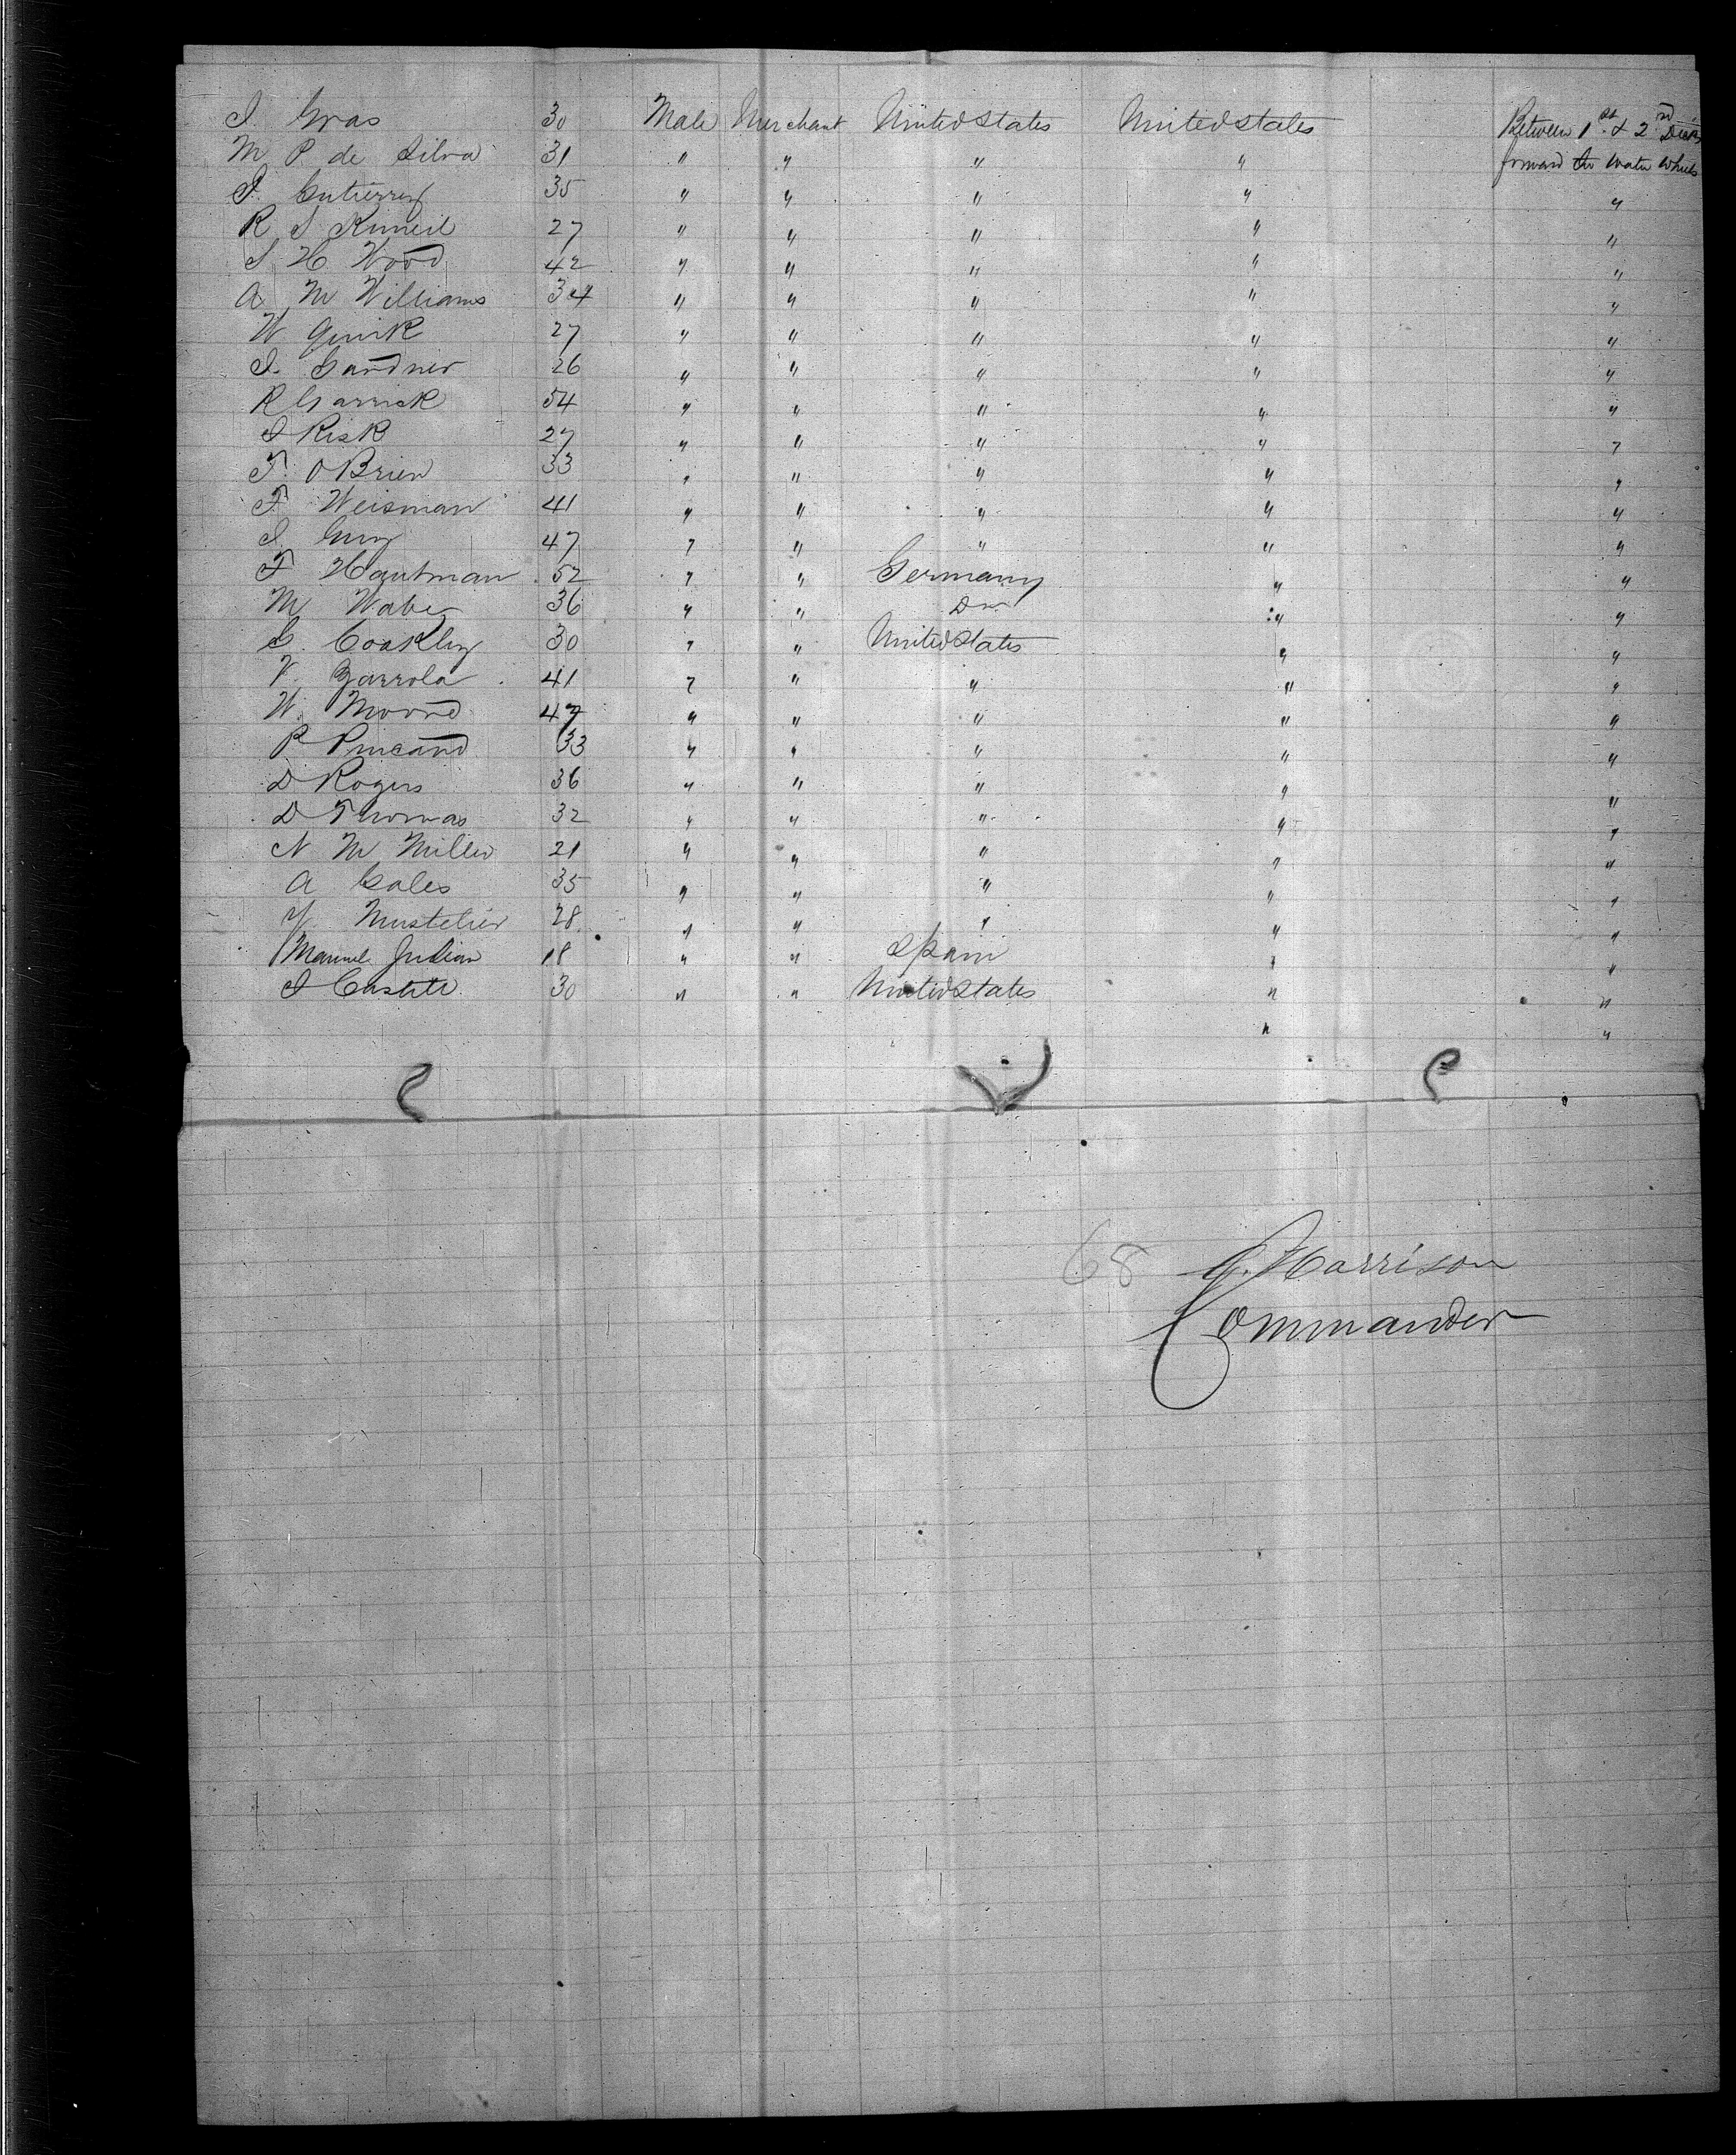 J. Gras 30 Male Merchant United States United States Between 1st & 2nd Decks
M P de Silva 31 " " " " forward the water wheels
J. Gutierrez 35 " " " " "
R S 27 " " " " "
S H Wood 42 " " " " "
A M Williams 34 " " " " "
W Quirk 27 " " " " "
J. Gardner 26 " " " " "
R Garrick 54 " " " " "
J Risk 27 " " " " "
T. O Brien 33 " " " " "
F. Weisman 41 " " " " "
J. 47 " " " " "
F Hautman 52 " " Germany " "
M Waber 36 " " Do " "
G. Coakley 30 " " United States " "
V. Zarrola 41 " " " " "
W. Moore 47 " " " " "
P. 33 " " " " "
D Rogers 36 " " " " "
D Thomas 32 " " " " "
N M Miller 21 " " " " "
A Gales 35 " " " " "
Y Mustelier 28 " " " " "
Manuel Julian 18 " " Spain " "
J 30 " " United States " "
" "
68 Harrison
Commander